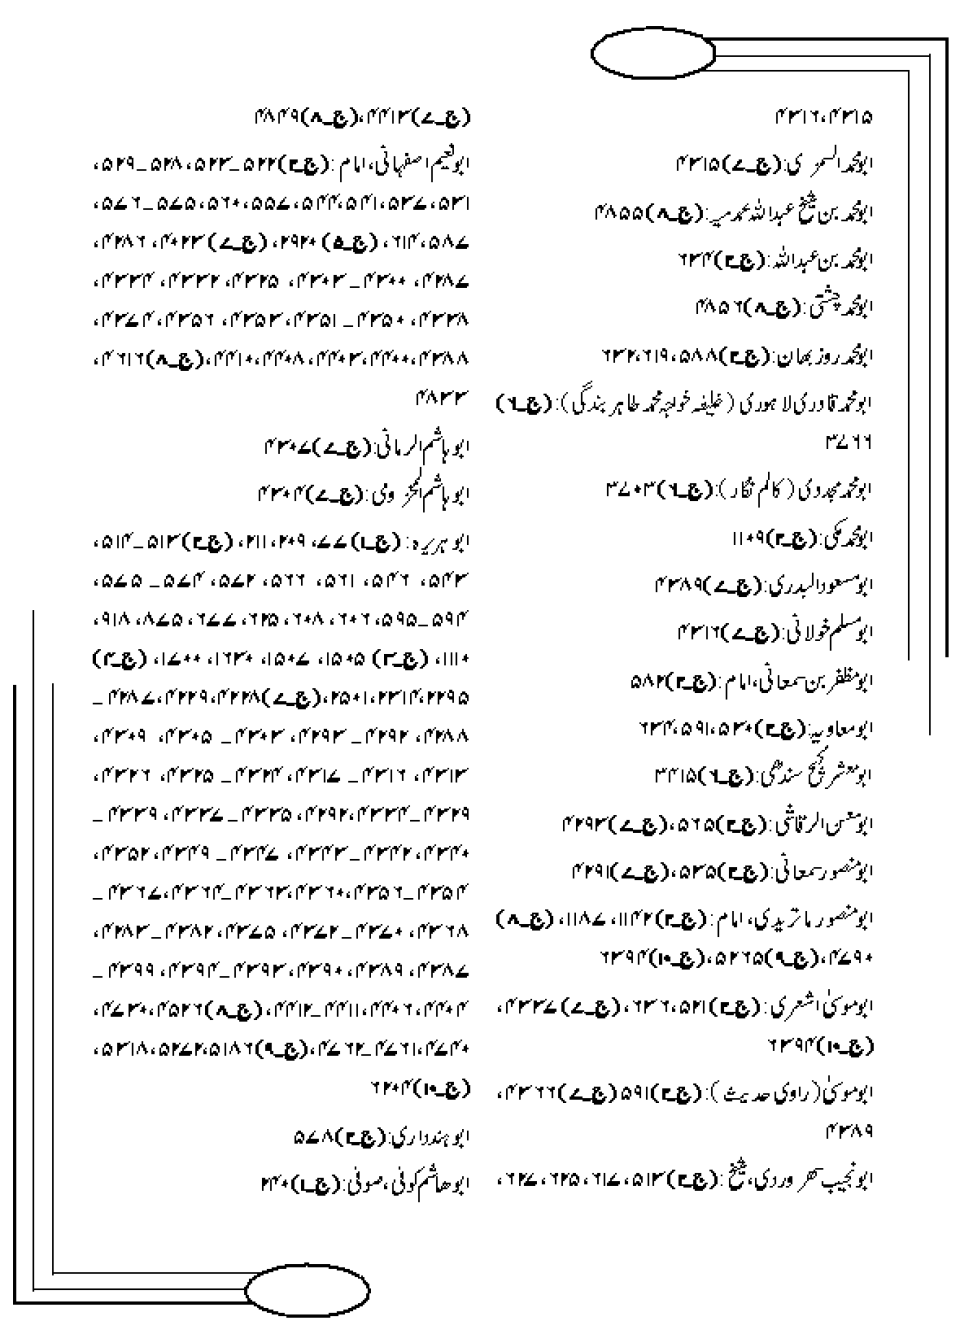 ۴۳۱۶،۴۳۱۵
ابومحمد السمری:(ج۔۷)۴۳۱۵
ابومحمد بن شیخ عبداللہ محمد میر:(ج۔۸)۴۸۵۵
ابومحمد بن عبداللہ:(ج۔۲)۶۳۴
ابومحمد چشتی:(ج۔۸)۴۸۵۶
ابومحمد روز بھان:(ج۔۲)۶۳۲،۶۱۹،۵۸۸
ابومحمد قادری لاہوری (خلیفہ خواجہ محمد طاہر بندگی):(ج۔۶)
۳۷۶۶
ابومحمد مجددی (کالم نگار):(ج۔۶)۳۷۰۳
ابومحمد مکی:(ج۔۲)۱۱۰۹
ابومسعود البدری:(ج۔۷)۴۳۸۹
ابومسلم خولانی:(ج۔۷)۴۳۱۶
ابومظفر بن سمعانی، امام:(ج۔۲)۵۸۲
ابومعاویہ:(ج۔۲)۶۳۴،۵۹۱،۵۳۰
ابومعشر نجیح سندھی:(ج۔۶)۳۴۱۵
ابومعن الرقاشی:(ج۔۲)۵۶۵،(ج۔۷)۴۲۹۳
ابومنصور سمعانی:(ج۔۲)۵۳۵،(ج۔۷)۴۲۹۱
ابومنصور ماتریدی، امام:(ج۔۲)۱۱۴۲، ۱۱۸۷، (ج۔۸)
۴۷۹۰،(ج۔۹)۵۲۶۵،(ج۔۱۰)۶۳۹۴
ابوموسیٰ اشعری:(ج۔۲)۵۲۱،۶۳۶، (ج۔۷)۴۳۳۷،
(ج۔۱۰)۶۳۹۴
ابوموسیٰ (راوی حدیث):(ج۔۲)۵۹۱ (ج۔۷)۴۳۶۶،
۴۳۸۹
ابونجیب سہروردی، شیخ:(ج۔۲)۵۱۳، ۶۱۷، ۶۲۵، ۶۲۷،
(ج۔۷)۴۴۱۳،(ج۔۸)۴۸۴۹
ابونعیم اصفہانی، امام:(ج۔۲)۵۲۲۔۵۲۳، ۵۲۸۔۵۲۹،
۵۳۱،۵۳۷،۵۴۱،۵۴۴،۵۵۷،۵۶۰،۵۷۵۔۵۷۶،
۵۸۷،۶۱۴، (ج۔۵)۲۹۲۰، (ج۔۷)۴۲۳۰، ۴۲۸۶،
۴۲۸۷، ۴۳۰۰۔۴۳۰۳، ۴۳۲۵، ۴۳۳۲، ۴۳۳۴،
۴۳۳۸، ۴۳۵۰۔۴۳۵۱، ۴۳۵۳، ۴۳۵۶، ۴۳۷۴،
۴۳۸۸،۴۴۰۰،۴۴۰۳،۴۴۰۸،۴۴۱۰،(ج۔۸)۴۶۱۶،
۴۸۳۳
ابو ہاشم الرمانی:(ج۔۷)۴۳۰۷
ابو ہاشم المخزومی:(ج۔۷)۴۳۰۴
ابو ہریرہ:(ج۔۱)۷۷، ۲۰۹، ۲۱۱، (ج۔۲)۵۱۳۔۵۱۴،
۵۴۳، ۵۴۶، ۵۶۱، ۵۶۶، ۵۷۲، ۵۷۴۔۵۷۵،
۵۹۴۔۵۹۵،۶۰۶،۶۰۸، ۶۲۵، ۶۷۷، ۸۷۵، ۹۱۸،
۱۱۱۰، (ج۔۳) ۱۵۰۵، ۱۵۰۷، ۱۶۳۰، ۱۷۰۰، (ج۔۴)
۲۲۹۵،۲۳۱۴،۲۵۰۱،(ج۔۷)۴۲۲۸،۴۲۲۹،۴۲۸۷۔
۴۲۸۸، ۴۲۹۲۔۴۲۹۳، ۴۳۰۳۔۴۳۰۵، ۴۳۰۹،
۴۳۱۳، ۴۳۱۶۔۴۳۱۷، ۴۳۲۴۔۴۳۲۵، ۴۳۲۶،
۴۳۲۹۔۴۳۳۴،۴۲۹۲،۴۳۳۵۔۴۳۳۷، ۴۳۳۹۔
۴۳۴۰،۴۳۴۲۔۴۳۴۳، ۴۳۴۷۔۴۳۴۹، ۴۳۵۲،
۴۳۵۴۔۴۳۵۶،۴۳۶۰،۴۳۶۳۔۴۳۶۴، ۴۳۶۷۔
۴۳۶۸، ۴۳۷۰۔۴۳۷۲، ۴۳۷۵، ۴۳۸۲۔۴۳۸۳،
۴۳۸۷، ۴۳۸۹، ۴۳۹۰،۴۳۹۳۔۴۳۹۴، ۴۳۹۹۔
۴۴۰۴،۴۴۰۶،۴۴۱۱۔۴۴۱۲،(ج۔۸)۴۵۲۶،۴۷۳۰،
۴۷۴۰،۴۷۶۱۔۴۷۶۲،(ج۔۹)۵۱۸۶،۵۲۷۲،۵۳۱۸،
(ج۔۱۰)۶۲۰۴
ابو ہندداری:(ج۔۲)۵۷۸
ابوھاشم کوفی، صوفی:(ج۔۱)۲۴۰